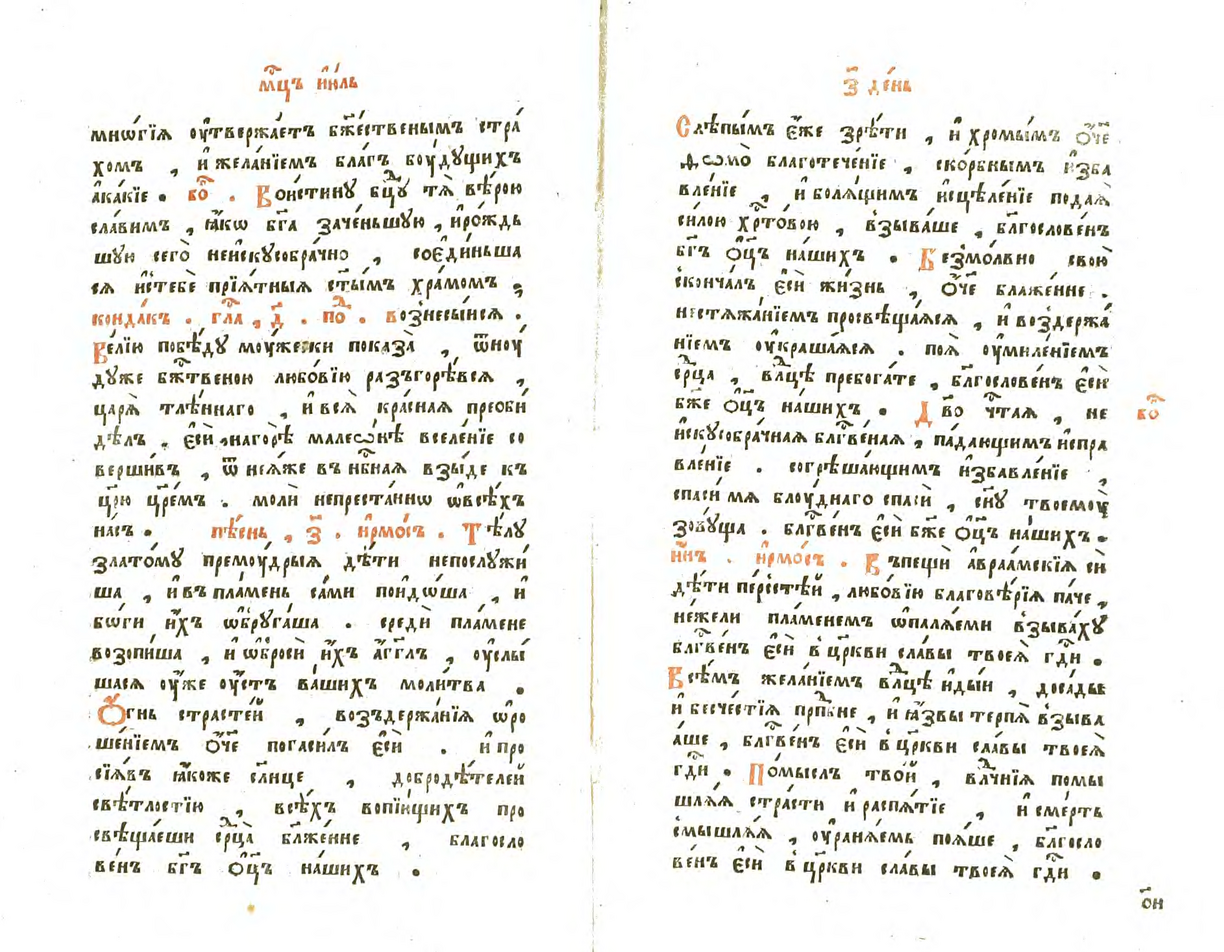 мц҃ъ и҆ю́ль
мнѡ́гїѧ ᲂу҆твержа́етъ бж҃е́ственымъ стра́
хомъ , и҆жела́нїемъ бла́гъ бꙋ́дꙋщихъ
а҆ка́кїе . бо҃ . Вои́стинꙋ бц҃ꙋ тѧ̀ вѣ́рою
сла́вимъ , ꙗ҆́кѡ бг҃а заче́ньшꙋю , и҆ро́ждь
шꙋю сего̀ неи҆скꙋсобра́чно , сое҆ди́ньша
сѧ и҆стебѐ прїѧ́тныѧ ст҃ы́мъ хра́момъ ,
конда́къ . гла́ , д҃ . по . вознесы́исѧ .
Ве́лїю побѣ́дꙋ мꙋ́жески показа̀ , ѿнꙋ́
дꙋже бж҃твеною любо́вїю разъгорѣ́всѧ ,
царѧ̀ тлѣ́ннаго , и҆всѧ̀ кра́снаѧ преоби́
дѣлъ . є҆сѝ , нагорѣ̀ малео́нѣ вселе́нїе со
верши́въ , ѿ неѧ́же въ нб҃наѧ взы́де къ
цр҃ю цр҃е́мъ . молѝ непреста́ннѡ ѡ҆всѣ́хъ
на́съ . пѣ́снь , з҃ . і҆рмо́съ . Тѣ́лꙋ
злато́мꙋ премꙋ́дрыѧ дѣ́ти непослꙋжи́
ша , и҆въ пла́мень са́ми поидо́ша , и҆
бо́ги и҆́хъ ѡ҆брꙋга́ша . средѝ пла́мене
возопи́ша , и҆ ѡ҆бросѝ и҆́хъ а҆́гг҃лъ , ᲂу҆слы́
шасѧ ᲂу҆́же ᲂу҆́стъ ва́шихъ моли́тва .
Ѻ҆́гнь страсте́й , воздержа́нїѧ ѡ҆ро
ше́нїемъ ѻ҆́ч҃е погаси́лъ є҆сѝ . и҆ про
сїѧ́въ ꙗ҆́коже сл҃нце , добродѣ́телей
свѣ́тлостїю , всѣ́хъ вопїю́щихъ про
свѣща́еши ср҃ца̀ бл҃же́нне , благосло
ве́нъ бг҃ъ ѻ҆ц҃ъ на́шихъ .
з҃ де́нь
Слѣпы́мъ є҆́же зрѣ́ти , и҆ хромы́мъ ѻ҆́ч҃е
благотече́нїе , ско́рбнымъ и҆зба
вле́нїе , и҆ болѧ́щимъ и҆сцѣле́нїе пода́ѧ
си́лою хр҃то́вою , взыва́ше , бл҃гослове́нъ
бг҃ъ ѻ҆ц҃ъ на́шихъ . Безмо́лвно свою̀
сконча́лъ є҆сѝ жи́знь , ѻ҆́ч҃е блаже́нне .
нестѧжа́нїемъ просвѣща́ѧсѧ , и҆ воздержа́
нїемъ ᲂу҆краша́ѧсѧ . поѧ̀ ᲂу҆миле́нїемъ
ср҃ца , влⷣцѣ пребога́те , бл҃гослове́нъ є҆сѝ
бж҃е ѻ҆ц҃ъ на́шихъ . Дв҃о чⷭ҇таѧ , не
бо҃
и҆скꙋсобра́чнаѧ бл҃гве́наѧ , па́дающимъ и҆спра
вле́нїе . согрѣша́ющимъ и҆збавле́нїе ,
спаси́ мѧ блꙋ́днаго спасѝ , сн҃ꙋ твоемꙋ̀
зовꙋ́ща . бл҃гве́нъ є҆сѝ бж҃е ѻ҆ц҃ъ на́шихъ .
и҃пъ . і҆рмо́съ . Въпещѝ а҆враа́мскїѧ си
дѣ́ти пе́рстѣй , любо́вїю благовѣ́рїѧ па́че ,
не́жели пла́менемъ ѡ҆палѧ́еми взыва́хꙋ
бл҃гве́нъ є҆сѝ вцр҃кви сла́вы твоеѧ̀ гдⷭ҇и .
Всѣ́мъ жела́нїемъ влⷣцѣ и҆ды́и , доса́ды
и҆ бесче́стїѧ прпⷣбне , и҆ ꙗ҆́звы терпѧ̀ взыва́
аше , бл҃гве́нъ є҆сѝ вцр҃кви сла́вы твоеѧ̀
гдⷭ҇и . По́мыслъ тво́й , влⷣчнїѧ помы
шлѧ́ѧ стра́сти и҆ распѧ́тїе , и҆ сме́рть
смышлѧ́ѧ , ᲂу҆ранѧ́емь поѧ́ше , бл҃госло
ве́нъ є҆сѝ вцр҃кви сла́вы твоеѧ̀ гдⷭ҇и .
о҃н